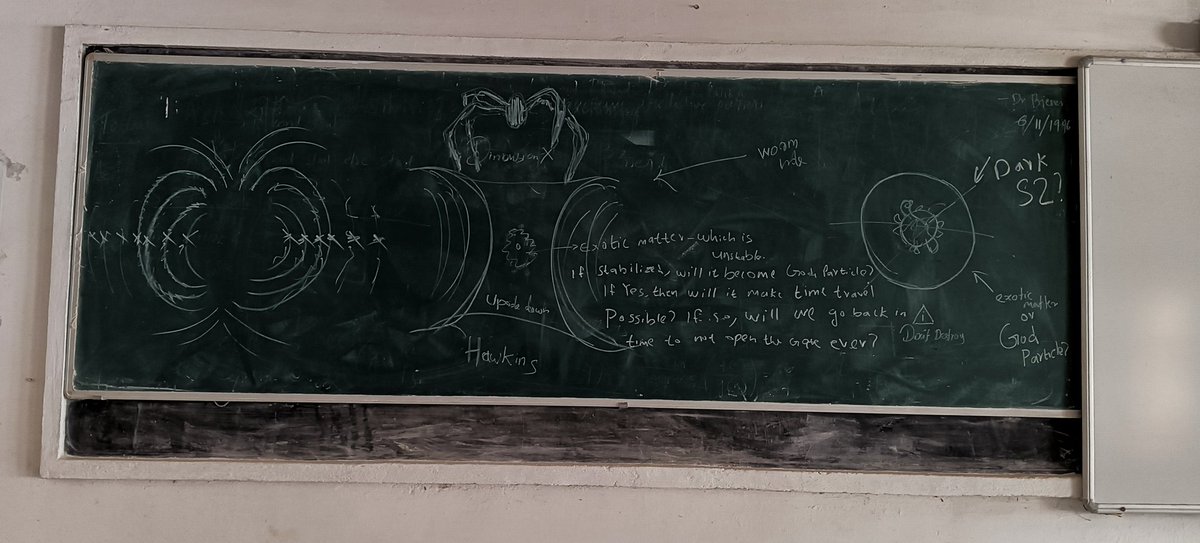 Dimension X
worm
hole
Exotic matter - which is
unstable.
If stabilized, will it become God Particle?
If Yes, then will it make time travel
Possible? If so, will we go back in
time to not open the gate ever?
Upside down
Hawkins
- Dr
6/11/1996
Dark
S2?
!
Don't Destroy
exotic
matter
or
God
Particle?